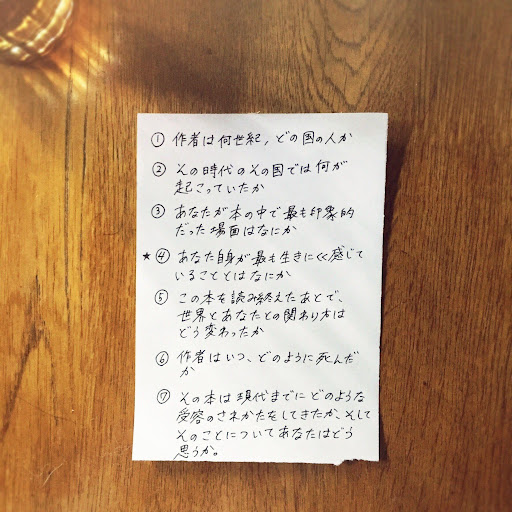 ① 作者は何世紀，どの国の人か
② その時代のその国では何が
起こっていたか
③ あなたが本の中で最も印象的
だった場面はなにか
★④ あなた自身が最も生きにくく感じて
いることとはなにか
⑤ この本を読み終えたあとで、
世界とあなたとの関わり方は
どう変わったか
⑥ 作者はいつ、どのように死んだ
か
⑦ その本は現代までにどのような
受容のされかたをしてきたか、そして
そのことについてあなたはどう
思うか。